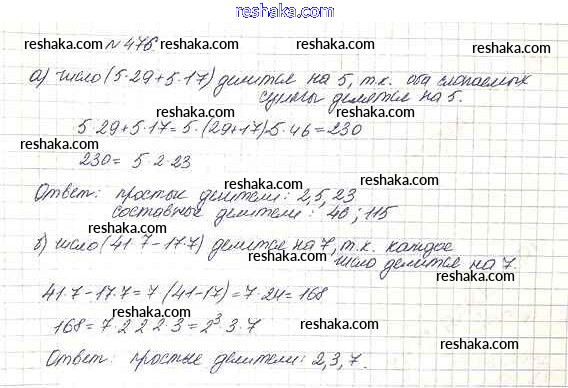 www.reshaka.com
reshaka.com №476 reshaka.com reshaka.com
а) число (5·29+5·17) делится на 5, т.к. оба слагаемых
суммы делятся на 5.
reshaka.com reshaka.com
5·29+5·17=5·(29+17)5·46=230
reshaka.com reshaka.com
230= 5·2·23
reshaka.com reshaka.com
Ответ: простые делители: 2,5,23
составные делители: 46; 115
reshaka.com reshaka.com
б) число (41·7-17·7) делится на 7, т.к. каждое
число делится на 7.
reshaka.com reshaka.com
41·7-17·7=7 (41-17)=7·24=168
reshaka.com
168=7·2·2·2·3=2³·3·7
reshaka.com reshaka.com
Ответ: простые делители: 2,3,7.
reshaka.com reshaka.com